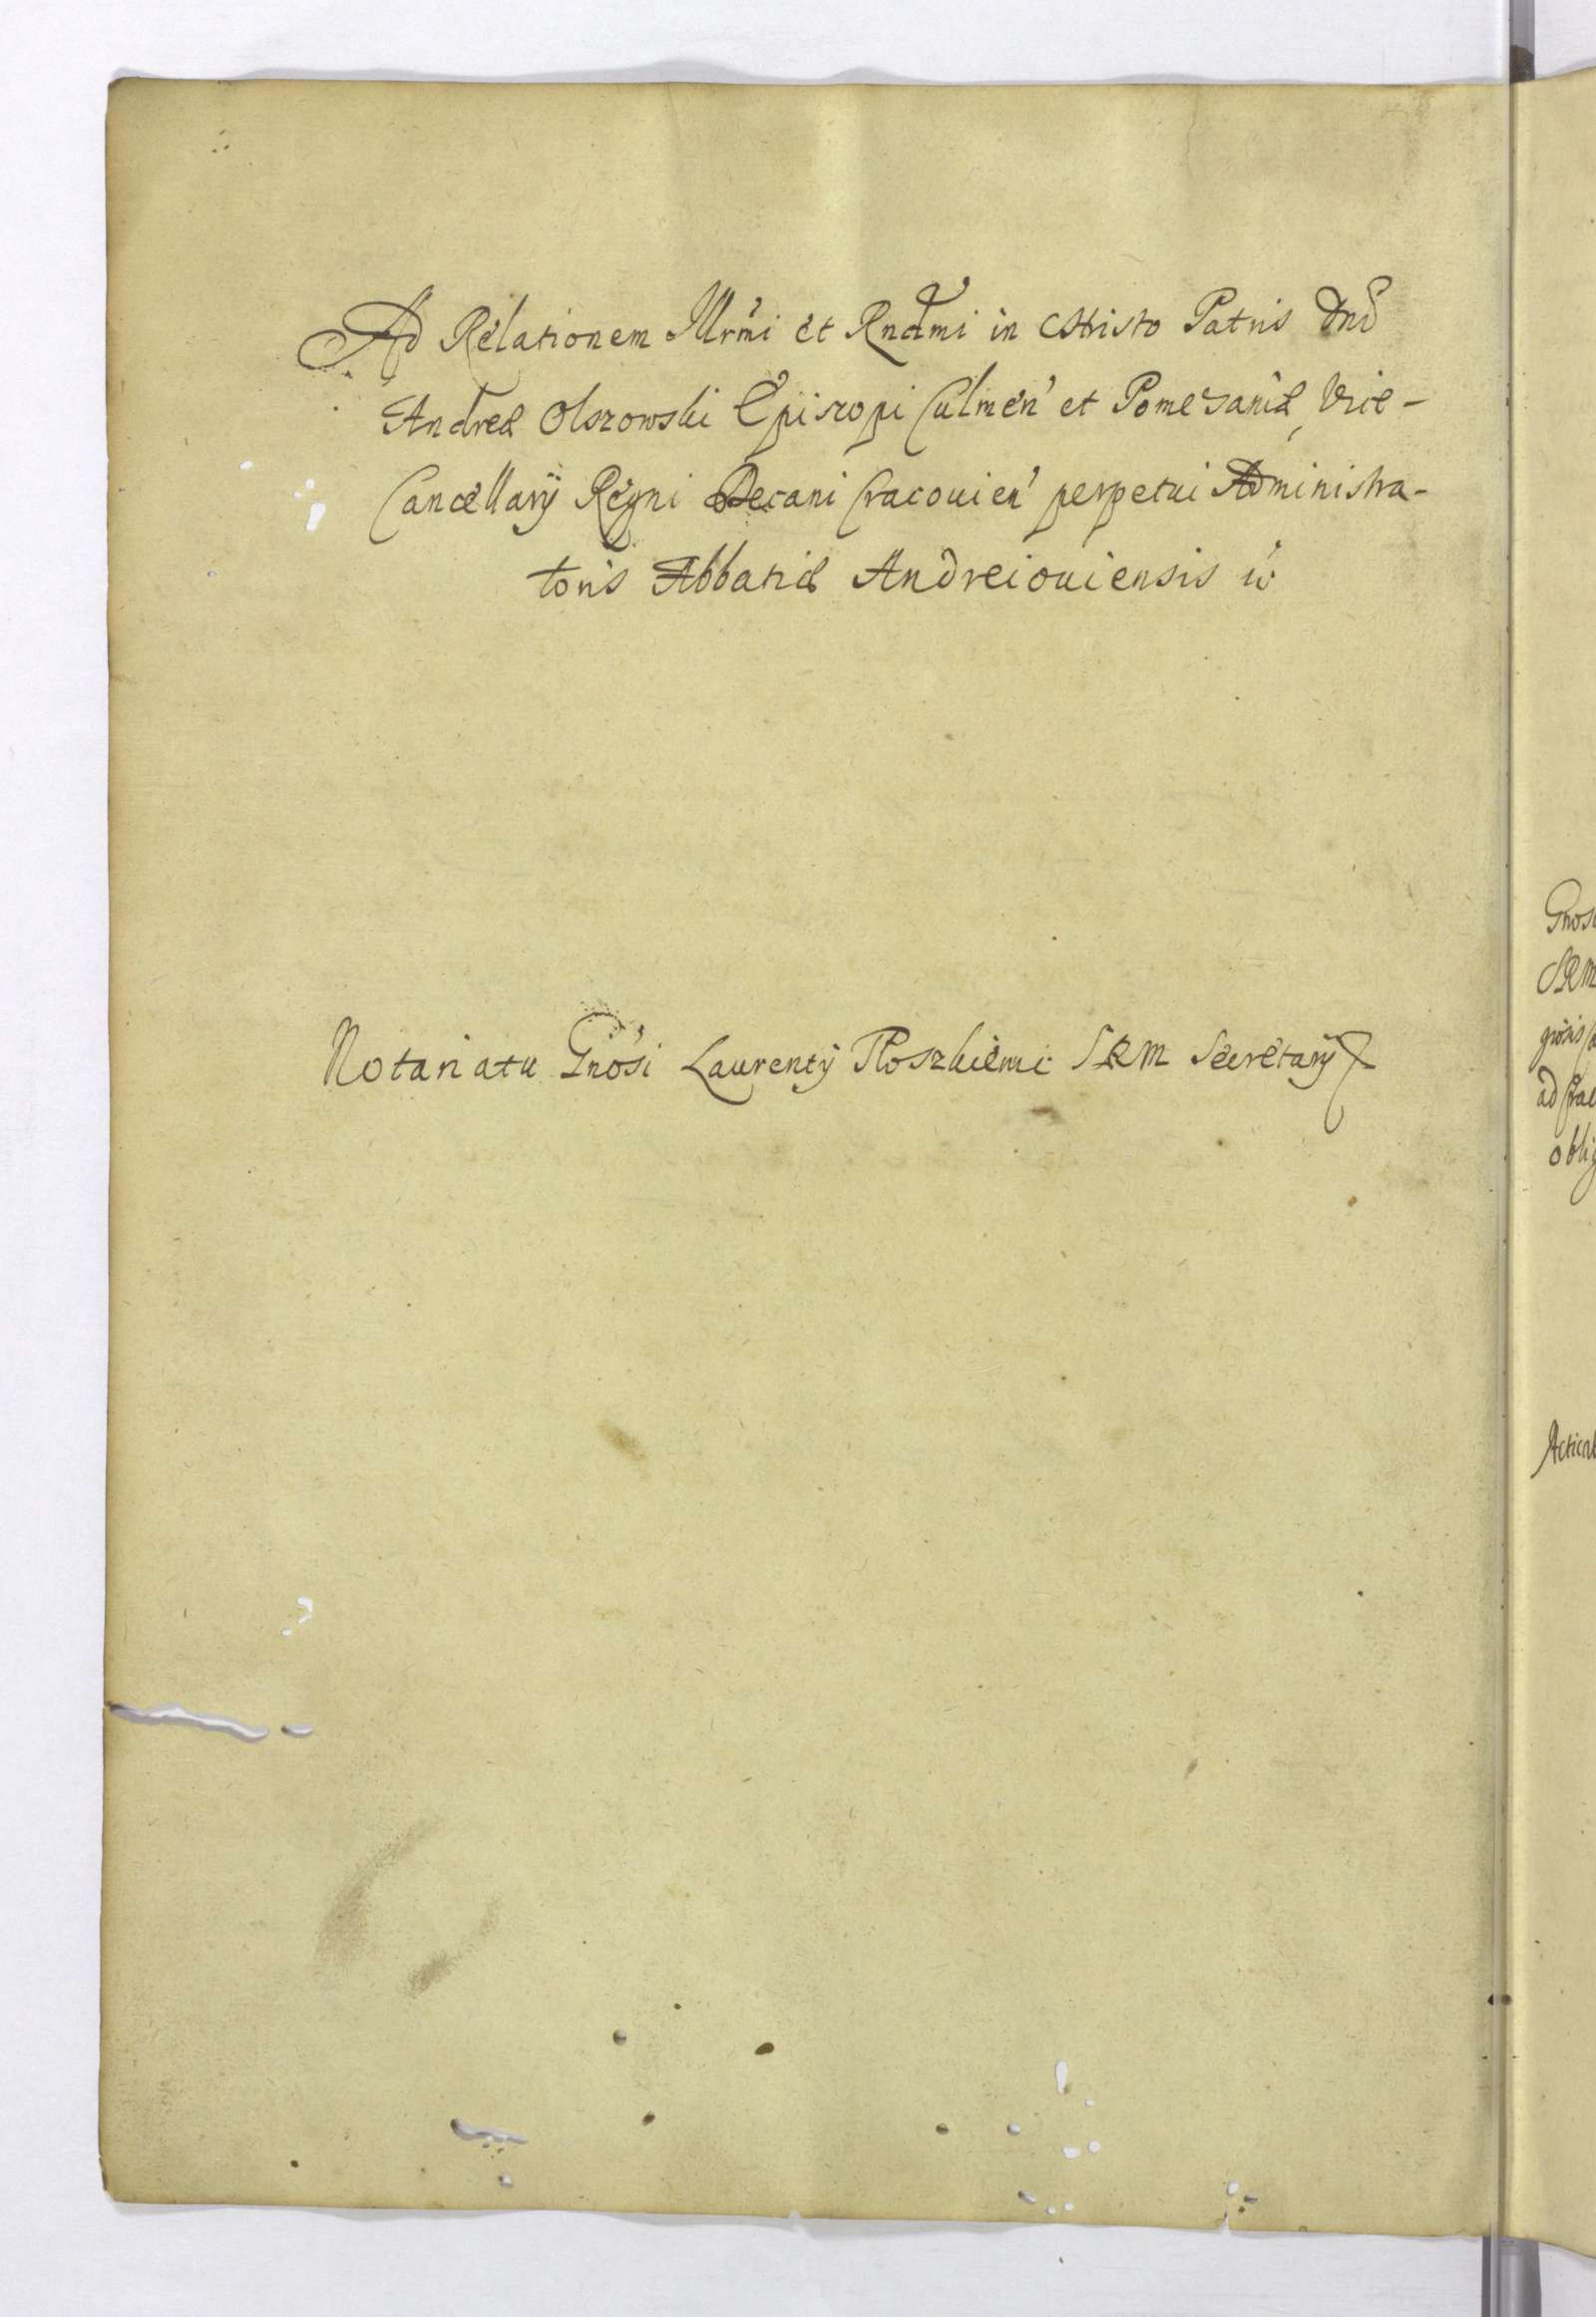 Ad Relationem Illrmi et Rndmi in Christo Patris Dnd
Andreæ Olszowski Episcopi Culmen' et Pomesaniæ, Vice-
Cancellarÿ Regni Decani Cracouien' perpetui Administra-
toris Abbatiæ Andreiouiensis
Notariatu Gnosi Laurentÿ SRM Secretarÿ
Gnosi
SRM
ad Crac
oblig
Acticat